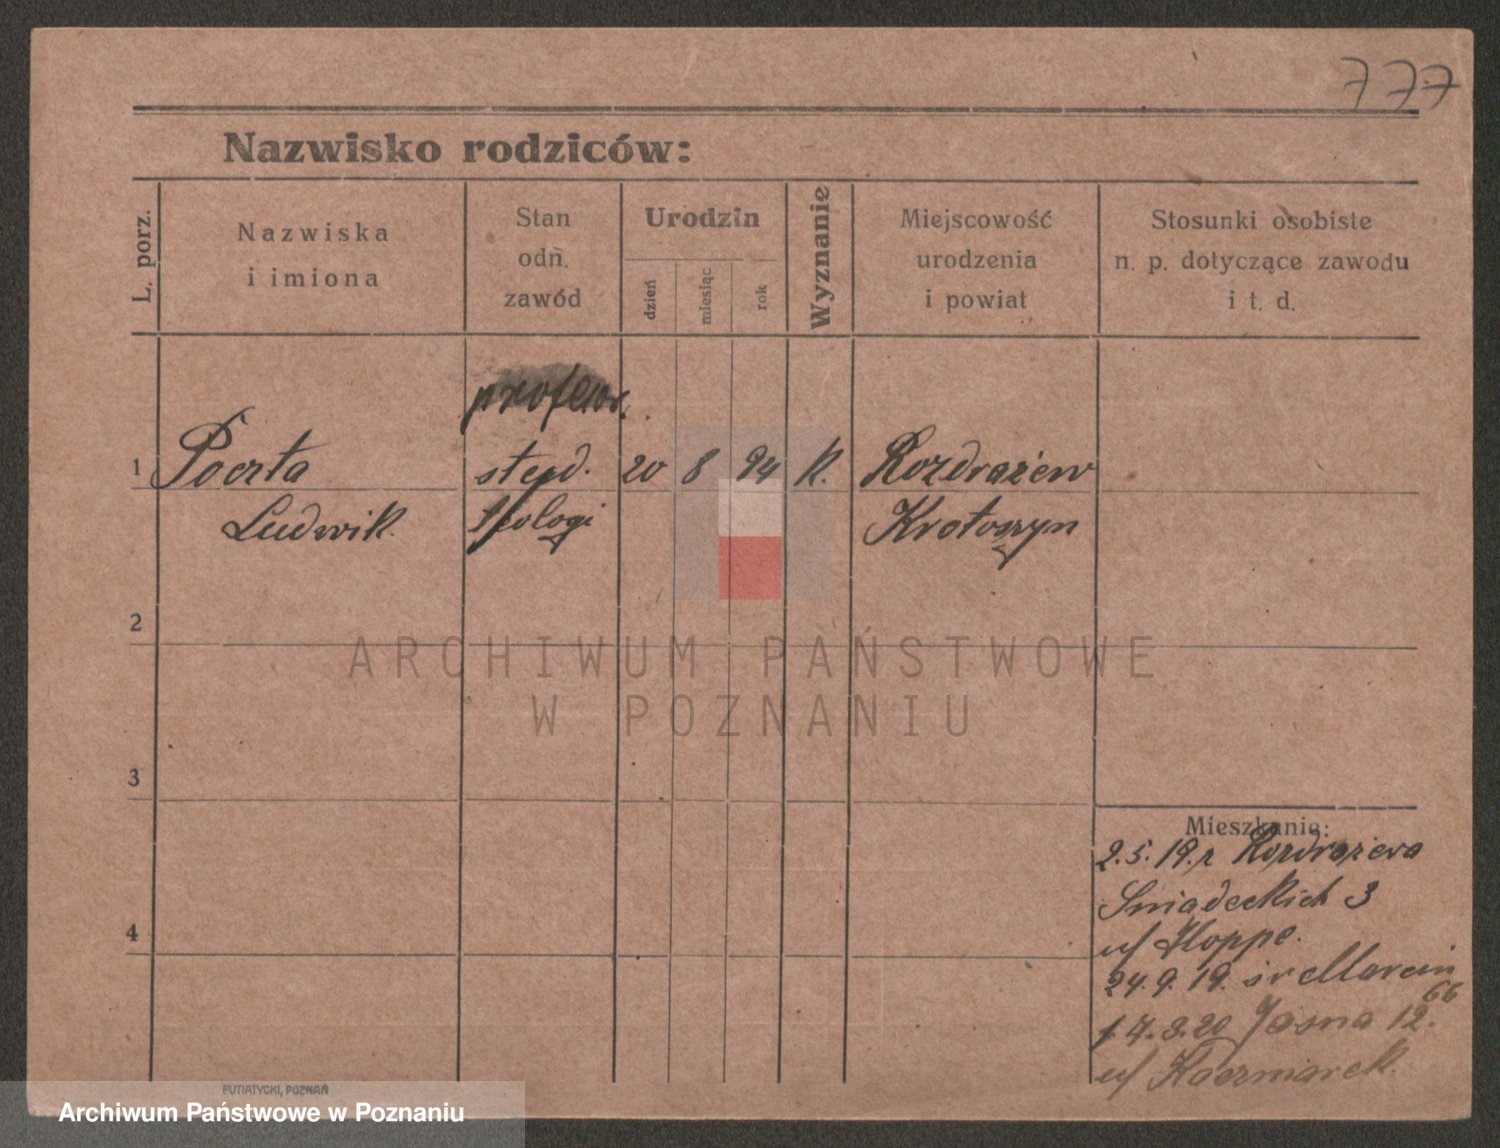 777
Nazwisko rodziców:
L. porz.
Nazwiska
i imiona
Stan
odn.
zawód
Urodzin
dzień
miesiąc
rok
Wyznanie
Miejscowość
urodzenia
i powiat
Stosunki osobiste
n. p. dotyczące zawodu
i t. d.
profesor.
1 Poczta stud. 20 8 94 K. Rozdrażew
Ludwik teologi Krotoszyn
2
3
4
Mieszkanie:
2.5.19. z Rozdrażewa
Śniadeckich 3
u/ Hoppe.
24.9.19. św Marcin
66
1.7.3.20 Jasna 12.
u/ Kaczmarek.
ARCHIWUM PAŃSTWOWE
W POZNANIU
PUTIATYCKI, POZNAŃ
Archiwum Państwowe w Poznaniu